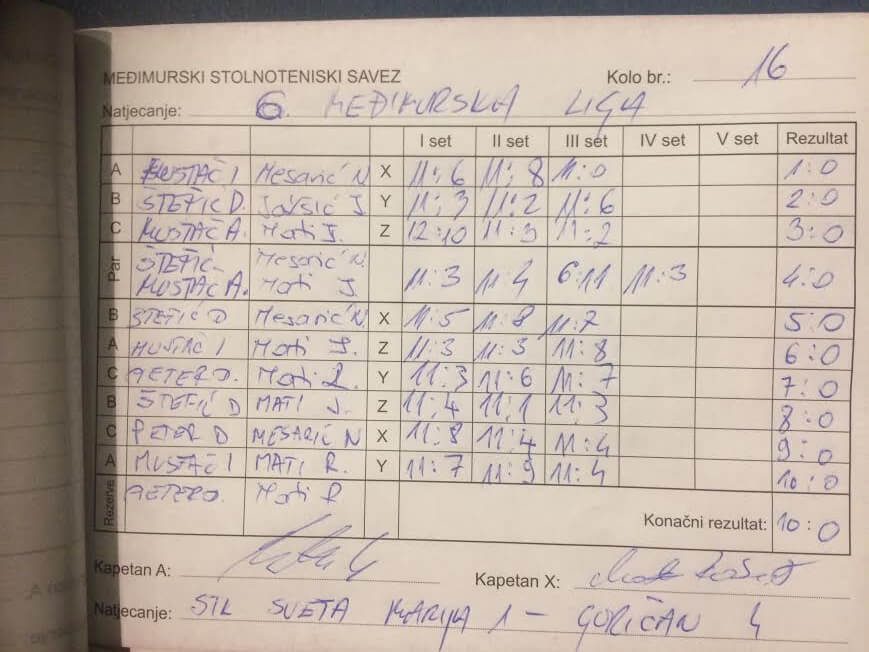 MEĐIMURSKI STOLNOTENISKI SAVEZ Kolo br.: 16
Natjecanje: 6. MEĐIMURSKA LIGA
I set II set III set IV set V set Rezultat
A MUSTAČ I Mesarić N X 11:6 11:8 11:0 1:0
B ŠTEFIĆ D. J. Y 11:3 11:2 11:6 2:0
C MUSTAČ A. Mati J. Z 12:10 11:3 11:2 3:0
Par ŠTEFIĆ- Mesarić N.
MUSTAČ A. Mati J. 11:3 11:4 6:11 11:3 4:0
B ŠTEFIĆ D Mesarić N. X 11:5 11:8 11:7 5:0
A MUSTAČ I Mati J. Z 11:3 11:3 11:8 6:0
C PETER D. Mati R. Y 11:3 11:6 11:7 7:0
B ŠTEFIĆ D MATI J. Z 11:4 11:1 11:3 8:0
C PETER D MESARIĆ N X 11:8 11:4 11:4 9:0
A MUSTAČ I MATI R. Y 11:7 11:9 11:4 10:0
Rezerve PETER D. Mati R Konačni rezultat: 10:0
Kapetan A: Kapetan X:
Natjecanje: STK SVETA MARIJA 1 - GORIČAN 4